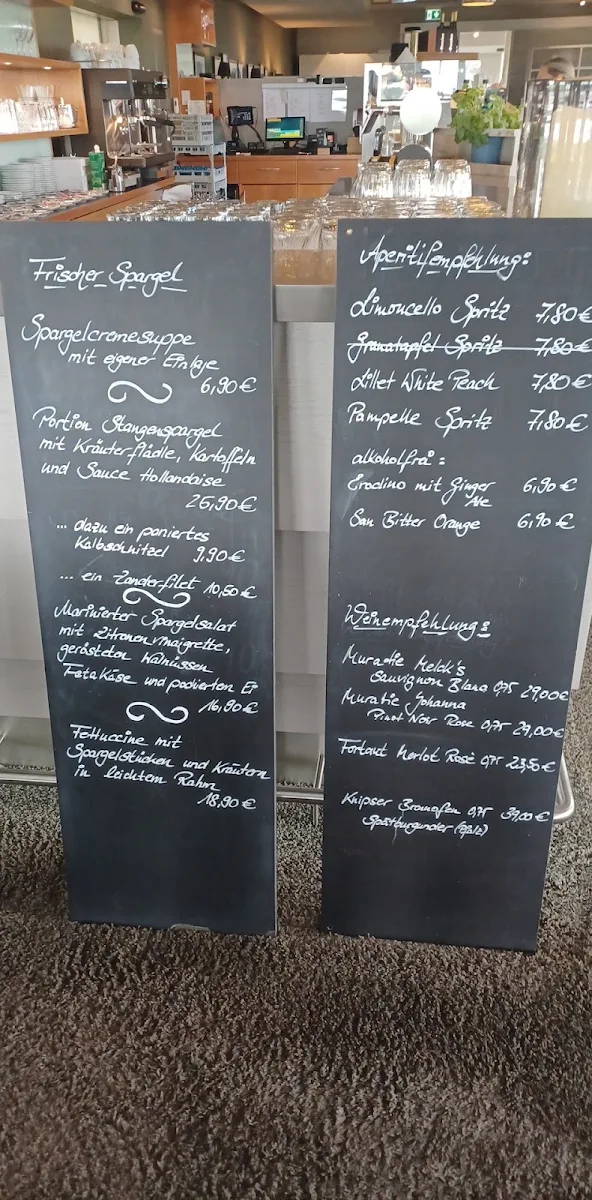 Frischer Spargel
Spargelcremesuppe
mit eigener Einlage
6,90€
Portion Stangenspargel
mit Kräuterflädle, Kartoffeln
und Sauce Hollandaise
26,90€
... dazu ein paniertes
Kalbschnitzel 9,90€
... ein Zanderfilet 10,50€
Marinierter Spargelsalat
mit Zitronenvinaigrette,
gerösteten Walnüssen
Fetakäse und pochierten Ei
16,90€
Fettuccine mit
Spargelstücken und Kräutern
in leichtem Rahm
18,90€
Aperitifempfehlung:
Limoncello Spritz 7,80€
Granatapfel Spritz 7,80€
Lillet White Peach 7,80€
Pampelle Spritz 7,80€
alkoholfrei:
Crodino mit Ginger 6,90€
Ale
San Bitter Orange 6,90€
Weinempfehlung:
Muratie Melck's
Sauvignon Blanc 0,75 29,00€
Muratie Johanna
Pinot Noir Rose 0,75 29,00€
Fortant Merlot Rosé 0,75 23,50€
Knipser 0,75 39,00€
Spätburgunder (Pfalz)